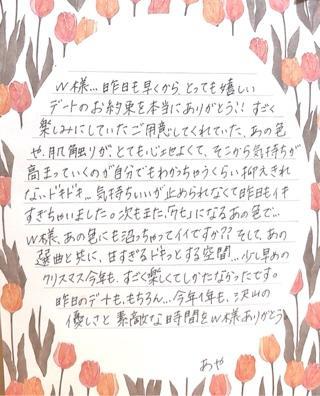 W様…昨日も早くから、とっても嬉しい
デートのお約束を本当にありがとう!! すごく
楽しみにしていたご用意してくれていた、あの色
や、肌触りが、とても心地よくて、そこから気持ちが
高まっていくのが自分でもわかっちゃうくらい抑えき
れないドキドキ…気持ちいいが止められなくて昨日もイキ
すぎちゃいました。次もまた、になるあの色で…
W様、あの色にも沼っちゃってイイですか?? そして、あの
選曲と共に、甘すぎるドキっとする空間…少し早めの
クリスマス今年も、すごく楽しくてしかたなかったです。
昨日のデートも、もちろん…今年1年も、沢山の
優しさと素敵な時間をW様ありがとう
あや